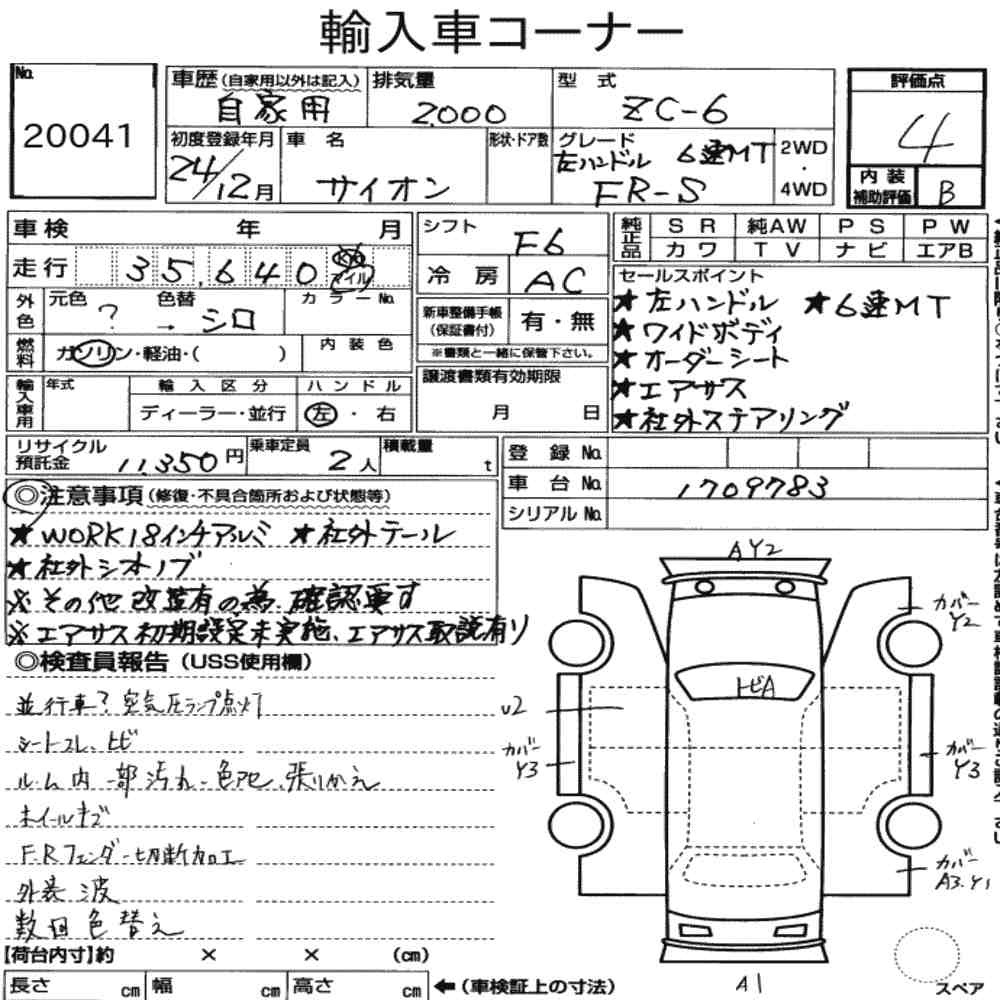 輸入車コーナー
No.
20041
車歴(自家用以外は記入)
自家用
排気量
2000
型 式
ZC-6
評価点
4
内装補助評価
B
初度登録年月
24/12月
車 名
サイオン
形状・ドア数
グレード
左ハンドル 6速MT
FR-S
2WD
・
4WD
車検 年 月
走行 35,640
マイル
外色
元色 ?
色替 → シロ
カラーNo.
燃料
ガソリン・軽油・( )
内装色
輸入車用
年式
輸入区分
ディーラー・並行
ハンドル
左・右
シフト
F6
冷房
AC
新車整備手帳
(保証書付)
有・無
※書類と一緒に保管下さい。
譲渡書類有効期限
月 日
純正品
SR 純AW PS PW
カワ TV ナビ エアB
セールスポイント
★左ハンドル ★6速MT
★ワイドボディ
★オーダーシート
★エアサス
★社外ステアリング
リサイクル預託金
11,350円
乗車定員
2人
積載量
t
登録No.
車台No.
1709783
シリアルNo.
◎注意事項(修復・不具合箇所および状態等)
★WORK18インチアルミ ★社外テール
★社外シフトノブ
※その他改造有の為、確認要す
※エアサス初期設定未実施、エアサス取説有り
◎検査員報告(USS使用欄)
並行車? 空気圧ランプ点灯
シートスレ、トビ
ルーム内一部汚れ・色アセ、張りかえ
ホイールキズ
F.Rフェンダー切断加工
外装 波
数回色替え
AY2
カバー
Y2
トビA
U2
カバー
Y3
カバー
Y3
カバー
A3.Y1
A1
スペア
【荷台内寸】約 × × (cm)
長さ cm 幅 cm 高さ cm ←(車検証上の寸法)